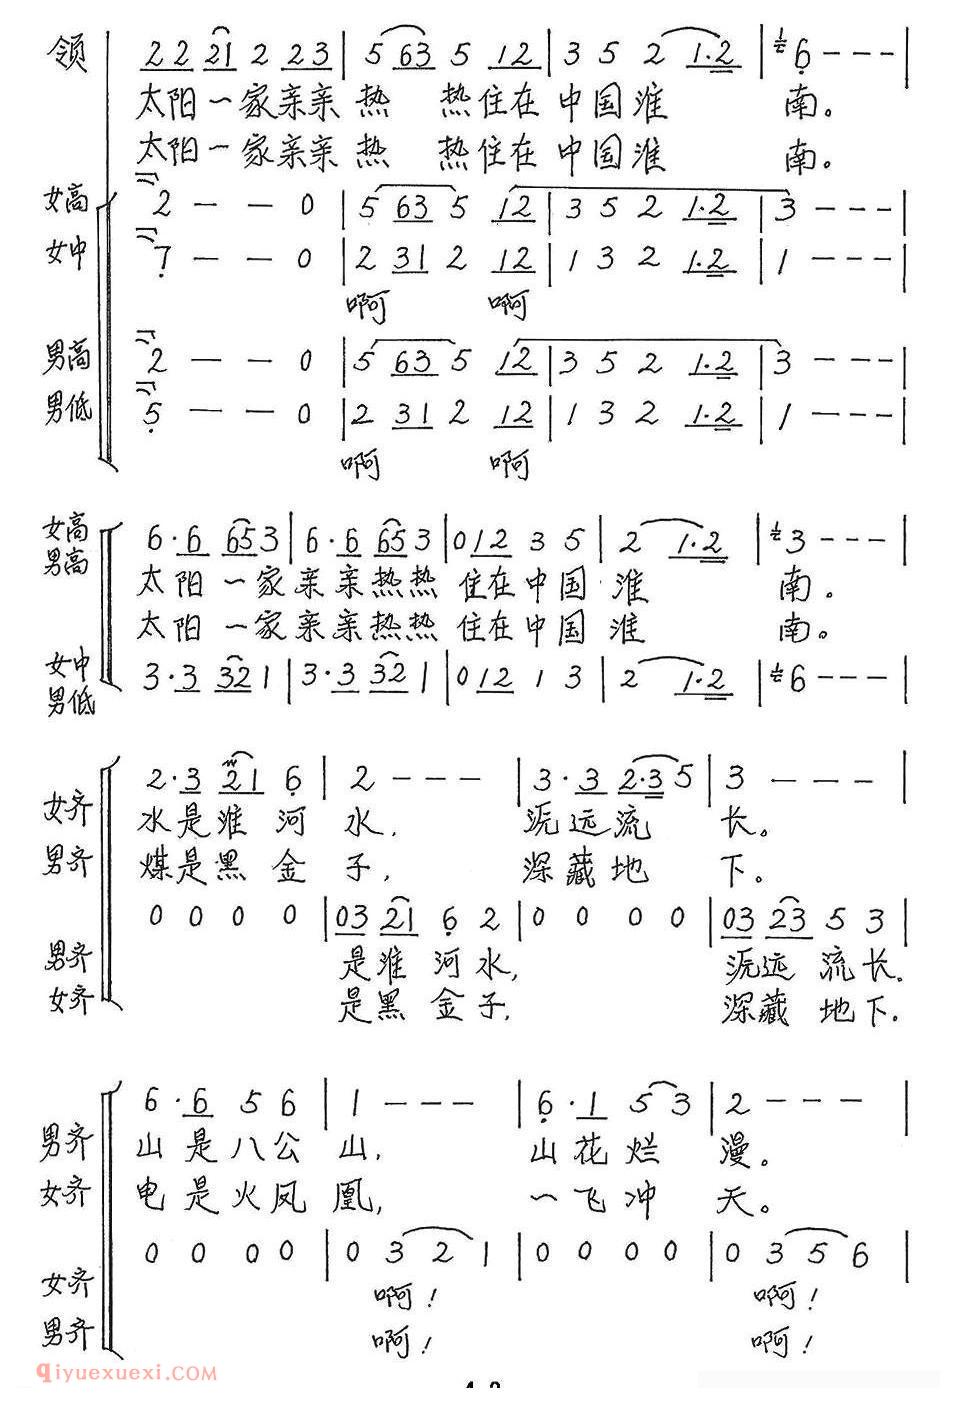 领 2 2 2 1 2 2 3 | 5 6 3 5 1 2 | 3 5 2 1·2 | 6 - - - |
太阳一家亲亲热 热住在中国淮 南。
太阳一家亲亲热 热住在中国淮 南。
女高 2 - - 0 | 5 6 3 5 1 2 | 3 5 2 1·2 | 3 - - - |
女中 7 - - 0 | 2 3 1 2 1 2 | 1 3 2 1·2 | 1 - - - |
啊 啊
男高 2 - - 0 | 5 6 3 5 1 2 | 3 5 2 1·2 | 3 - - - |
男低 5 - - 0 | 2 3 1 2 1 2 | 1 3 2 1·2 | 1 - - - |
啊 啊
女高
男高 6·6 6 5 3 | 6·6 6 5 3 | 0 1 2 3 5 | 2 1·2 | 3 - - - |
太阳一家亲亲热热 住在中国淮 南。
太阳一家亲亲热热 住在中国淮 南。
女中
男低 3·3 3 2 1 | 3·3 3 2 1 | 0 1 2 1 3 | 2 1·2 | 6 - - - |
2·3 2 1 6 | 2 - - - | 3·3 2·3 5 | 3 - - - |
女齐 水是淮河水, 源远流 长。
男齐 煤是黑金子, 深藏地 下。
0 0 0 0 | 0 3 2 1 6 2 | 0 0 0 0 | 0 3 2 3 5 3 |
男齐 是淮河水, 源远流长。
女齐 是黑金子, 深藏地下。
6·6 5 6 | 1 - - - | 6·1 5 3 | 2 - - - |
男齐 山是八公山, 山花烂 漫。
女齐 电是火凤凰, 一飞冲 天。
0 0 0 0 | 0 3 2 1 | 0 0 0 0 | 0 3 5 6 |
女齐 啊! 啊!
男齐 啊! 啊!
qiyuexuexi.com